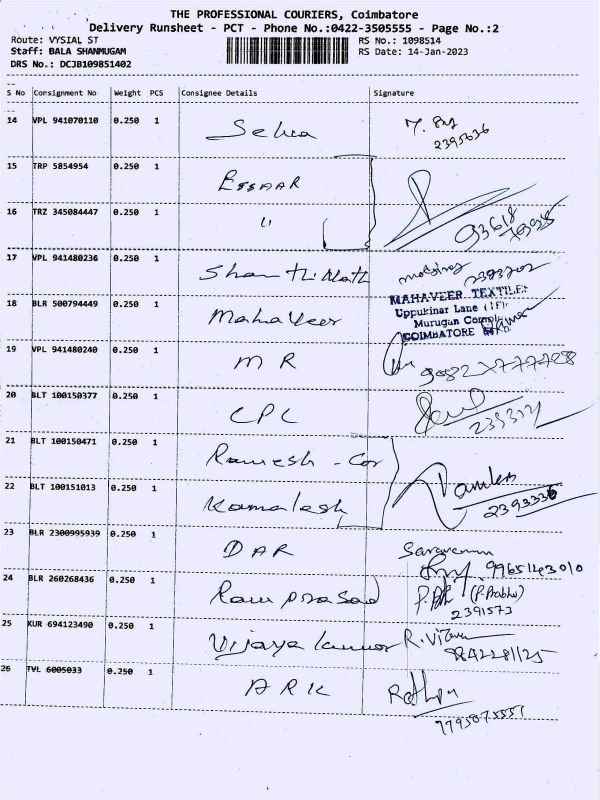 THE PROFESSIONAL COURIERS, Coimbatore
Delivery Runsheet - PCT - Phone No.:0422-3505555 - Page No.:2
Route: VYSIAL ST RS No.: 1098514
Staff: BALA SHANMUGAM RS Date: 14-Jan-2023
DRS No.: DCJB109851402
S No Consignment No Weight PCS Consignee Details Signature
14 VPL 941070110 0.250 1 Selva
2395636
15 TRP 5854954 0.250 1 ESSAAR
16 TRZ 345084447 0.250 1 "
93618
17 VPL 941480236 0.250 1 Shanthi Math
2393702
MAHAVEER TEXTILES
Uppukinar Lane
18 BLR 500794449 0.250 1 Mahaveer
Murugan Complex
COIMBATORE
19 VPL 941480240 0.250 1 M R
20 BLT 100150377 0.250 1 CPC
21 BLT 100150471 0.250 1 Ramesh - Cor
22 BLT 100151013 0.250 1 Kamalesh
2393336
23 BLR 2300995939 0.250 1 DAR Saravanan
9965143010
24 BLR 260268436 0.250 1 Ram prasad (P.Prabhu)
2391573
25 KUR 694123490 0.250 1 Vijaya kumar
9842281125
26 TWL 6005033 0.250 1 ARK